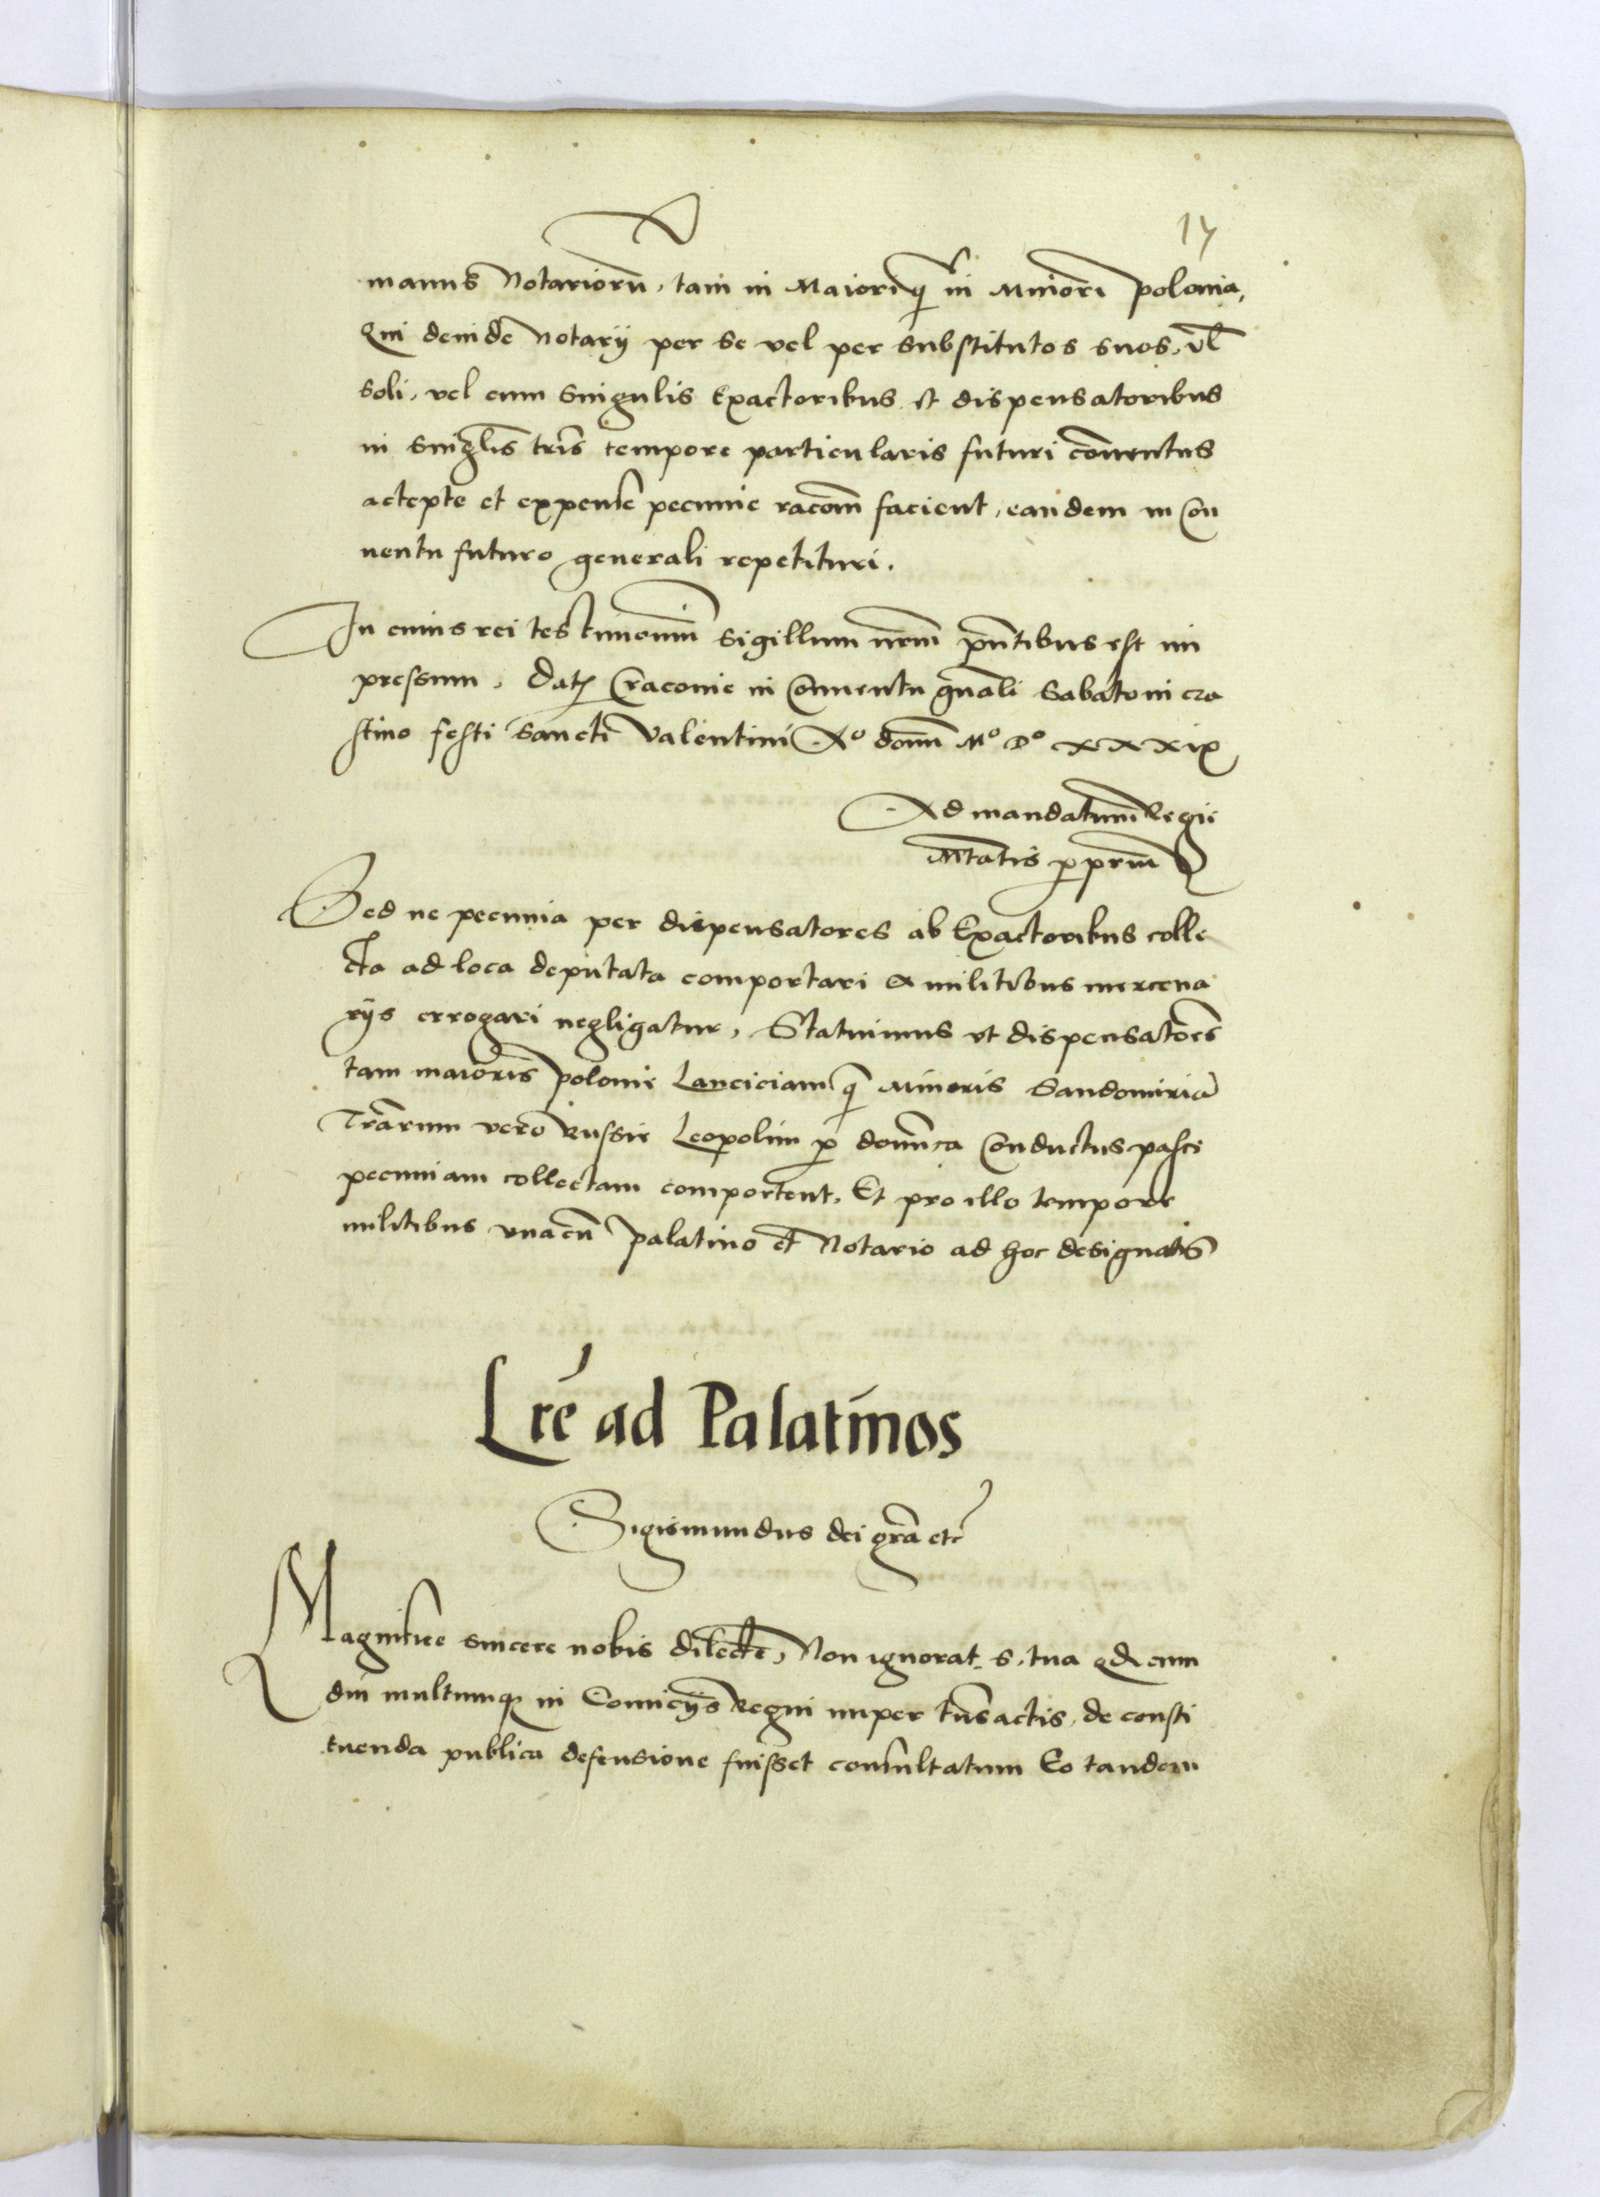 17
manus Notariorũ, tam in Maiori q̃ in Minori Polonia,
Qui deinde Notarij per se vel per substitutos suos, vl̃
soli, vel cum singulis Exactoribus et dispensatoribus
in singlis tr̃is tempore particularis futuri conuentus
accepte et expense pecunie racõm facient, eandem in Con
uentu futuro generali repetituri.
In cuius rei testimoniũ sigillum nr̃m pñtibus est im
pressum, Dat Cracouie in Conuentu gñali Sabato in cra
stino festi Sancti Valentini A° domĩ M° D° XXXIX
Ad mandatum Regie
Mtatis ppriũ
Sed ne pecunia per dispensatores ab Exactoribus colle
cta ad loca deputata comportari & militibus mercena
rijs errogari negligatur, Statuimus vt dispensatores
tam maioris Polonie Lanciciam q̃ Minoris Sandomiriã
Trãrum vero Russie Leopolim p domĩca Conductus pasce
pecuniam collectam comportent, Et pro illo tempore
militibus vnacũ Palatino et Notario ad hoc designatis
Lrẽ ad Palatinos
Sigismundus dei grã etc
Magnifice sincere nobis dilecte, Non ignorat s. tua qđ cum
diu multumq in Comicijs Regni nuper trñsactis, de consti
tuenda publica defensione fuisset consultatum Eo tandem